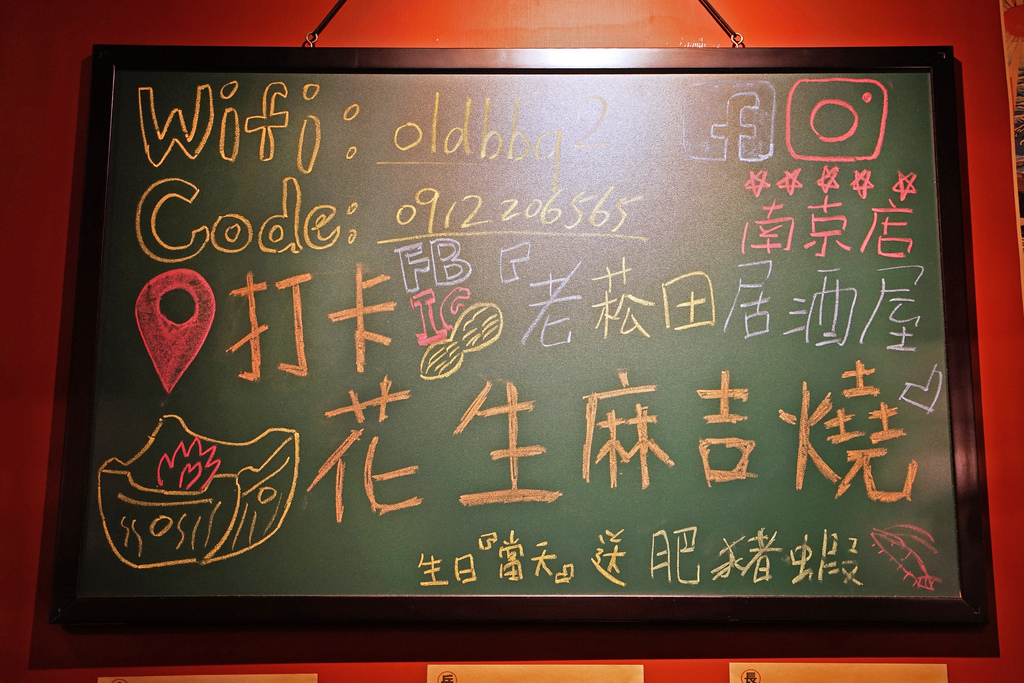 Wifi: oldbbq2
Code: 0912206565
f
南京店
打卡 FB IG 『老菘田居酒屋
花生麻吉燒
生日『當天』送肥豬蝦
兵
長